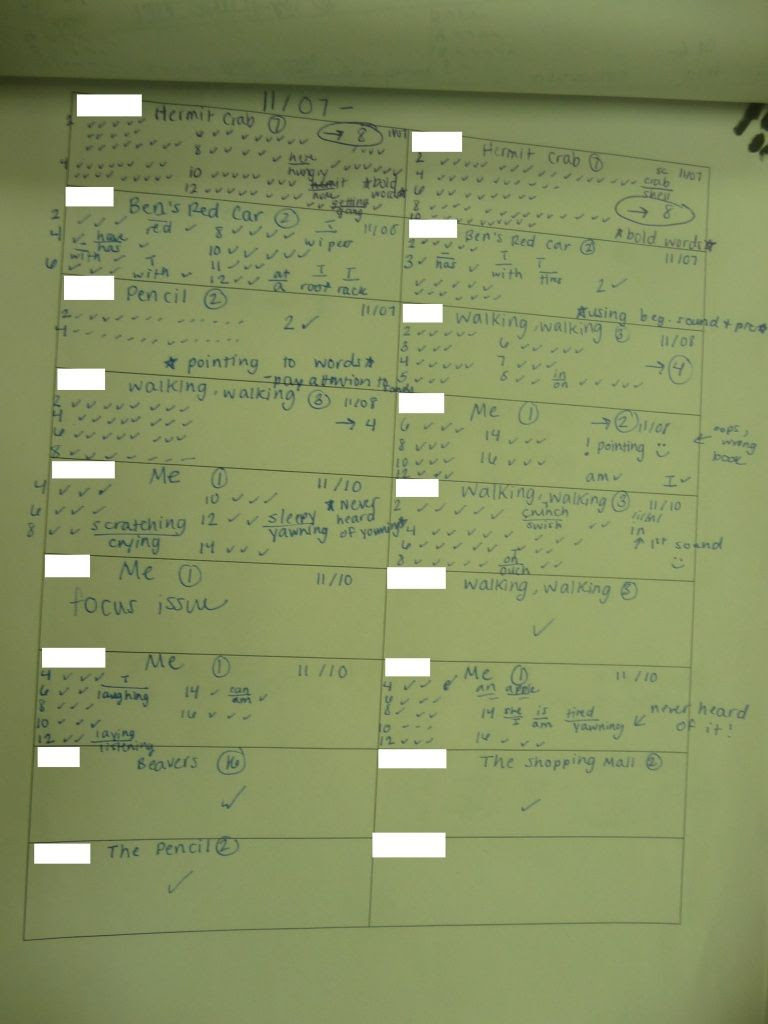 11/07 -
Hermit Crab 7 → 8 11/07
2 ✓ ✓ ✓ ✓ ✓ 6 ✓ ✓ ✓ ✓ ✓ ✓
8 ✓ ✓ ✓ ✓ ✓ here
4 ✓ ✓ ✓ ✓ ✓ ✓ 10 ✓ ✓ ✓ ✓ hungry
12 ✓ ✓ ✓ ✓ ✓ *bold words*
Hermit Crab 7 11/07
2 ✓ ✓ ✓ ✓
4 ✓ ✓ ✓ ✓ sc
6 ✓ ✓ crab
8 ✓ ✓ ✓ ✓ shell
10 → 8
*bold words*
Ben's Red Car 2 11/06
2 ✓ ✓ ✓ red ✓ 8 ✓ ✓ ✓ ✓ ✓ T
4 ✓ have ✓ 10 ✓ ✓ ✓ ✓ ✓ wiper
has
with T 11 ✓ ✓ ✓
6 ✓ ✓ ✓ with ✓ 12 ✓ ✓ at T T
a root rack
Ben's Red Car 2 11/07
2 ✓ ✓ ✓ ✓ ✓
3 ✓ has ✓ T T
with
2 ✓
*using beg. sound + pic*
Pencil 2 11/07
2 ✓ ✓ ✓ ✓ ✓ 2 ✓
4 ✓
*pointing to words*
- pay attention to
walking, walking 3 11/08
2 ✓ ✓ ✓ ✓ ✓ 6 ✓ ✓ ✓ ✓ ✓
3 ✓ ✓ ✓ 7 ✓ ✓ ✓ → 4
4 ✓ ✓ ✓ ✓ ✓ 8 ✓ ✓ in ✓ ✓ ✓ ✓ ✓
5 ✓ ✓ ✓ on
walking, walking 3 11/08
2 ✓ ✓ ✓ ✓ ✓ ✓ ✓
4 ✓ ✓ ✓ ✓ ✓ ✓ ✓ → 4
6 ✓ ✓ ✓ ✓ ✓ ✓ ✓
8 ✓
Me 1 → 2 11/08
6 ✓ ✓ ✓ 14 ✓ ✓ ✓ ! pointing ☺ ← oops, wrong book
8 ✓ ✓ ✓ 16 ✓ ✓ ✓
10 ✓ ✓ ✓
12 ✓ ✓ ✓ am ✓ I ✓
Me 1 11/10
4 ✓ ✓ ✓ 10 ✓ ✓ ✓ *Never heard of yawning*
6 ✓ ✓ ✓ 12 ✓ ✓ sleepy
8 ✓ ✓ scratching yawning
crying 14 ✓ ✓ ✓
walking, walking 3 11/10
2 ✓ ✓ ✓ ✓ ✓ crunch ✓ ✓
swish in
4 ✓ ✓ ✓ ✓ ✓ ✓ ✓ ↑ 1st sound
6 ✓ ✓ ✓ ✓ ✓ T ✓ ✓ ☺
8 ✓ ✓ ✓ ✓ ✓ oh ✓ ✓
ouch
Me 1 11/10
focus issue
walking, walking 3
✓
Me 1 11/10
4 ✓ ✓ ✓ T
6 ✓ ✓ laughing 14 ✓ can ✓
8 ✓ ✓ ✓ am
10 ✓ ✓ ✓ 16 ✓ ✓ ✓
12 ✓ ✓ laying
listening
Me 1 11/10
4 ✓ ✓ an apple
6 ✓ ✓ ✓
8 ✓ ✓ ✓ 14 she is tired ← never heard of it!
10 I am yawning
12 ✓ ✓ ✓ 16 ✓ ✓ ✓
Beavers 16
✓
The Shopping Mall 2
✓
The Pencil 2
✓